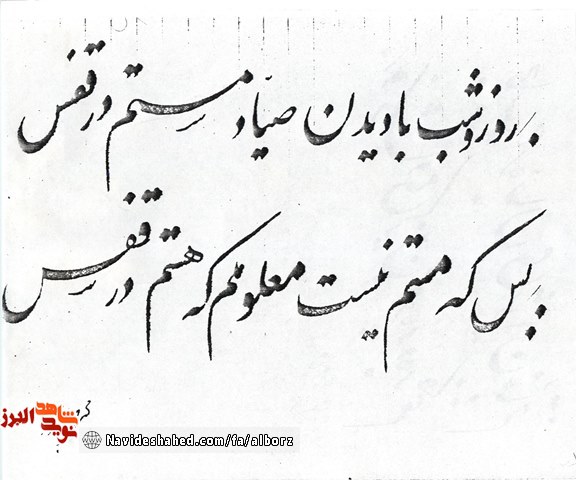 روز و شب با دیدن صیاد مستم در قفس
بس که مستم نیست معلومم که هستم در قفس
نوید شاهد البرز
Navideshahed.com/fa/alborz